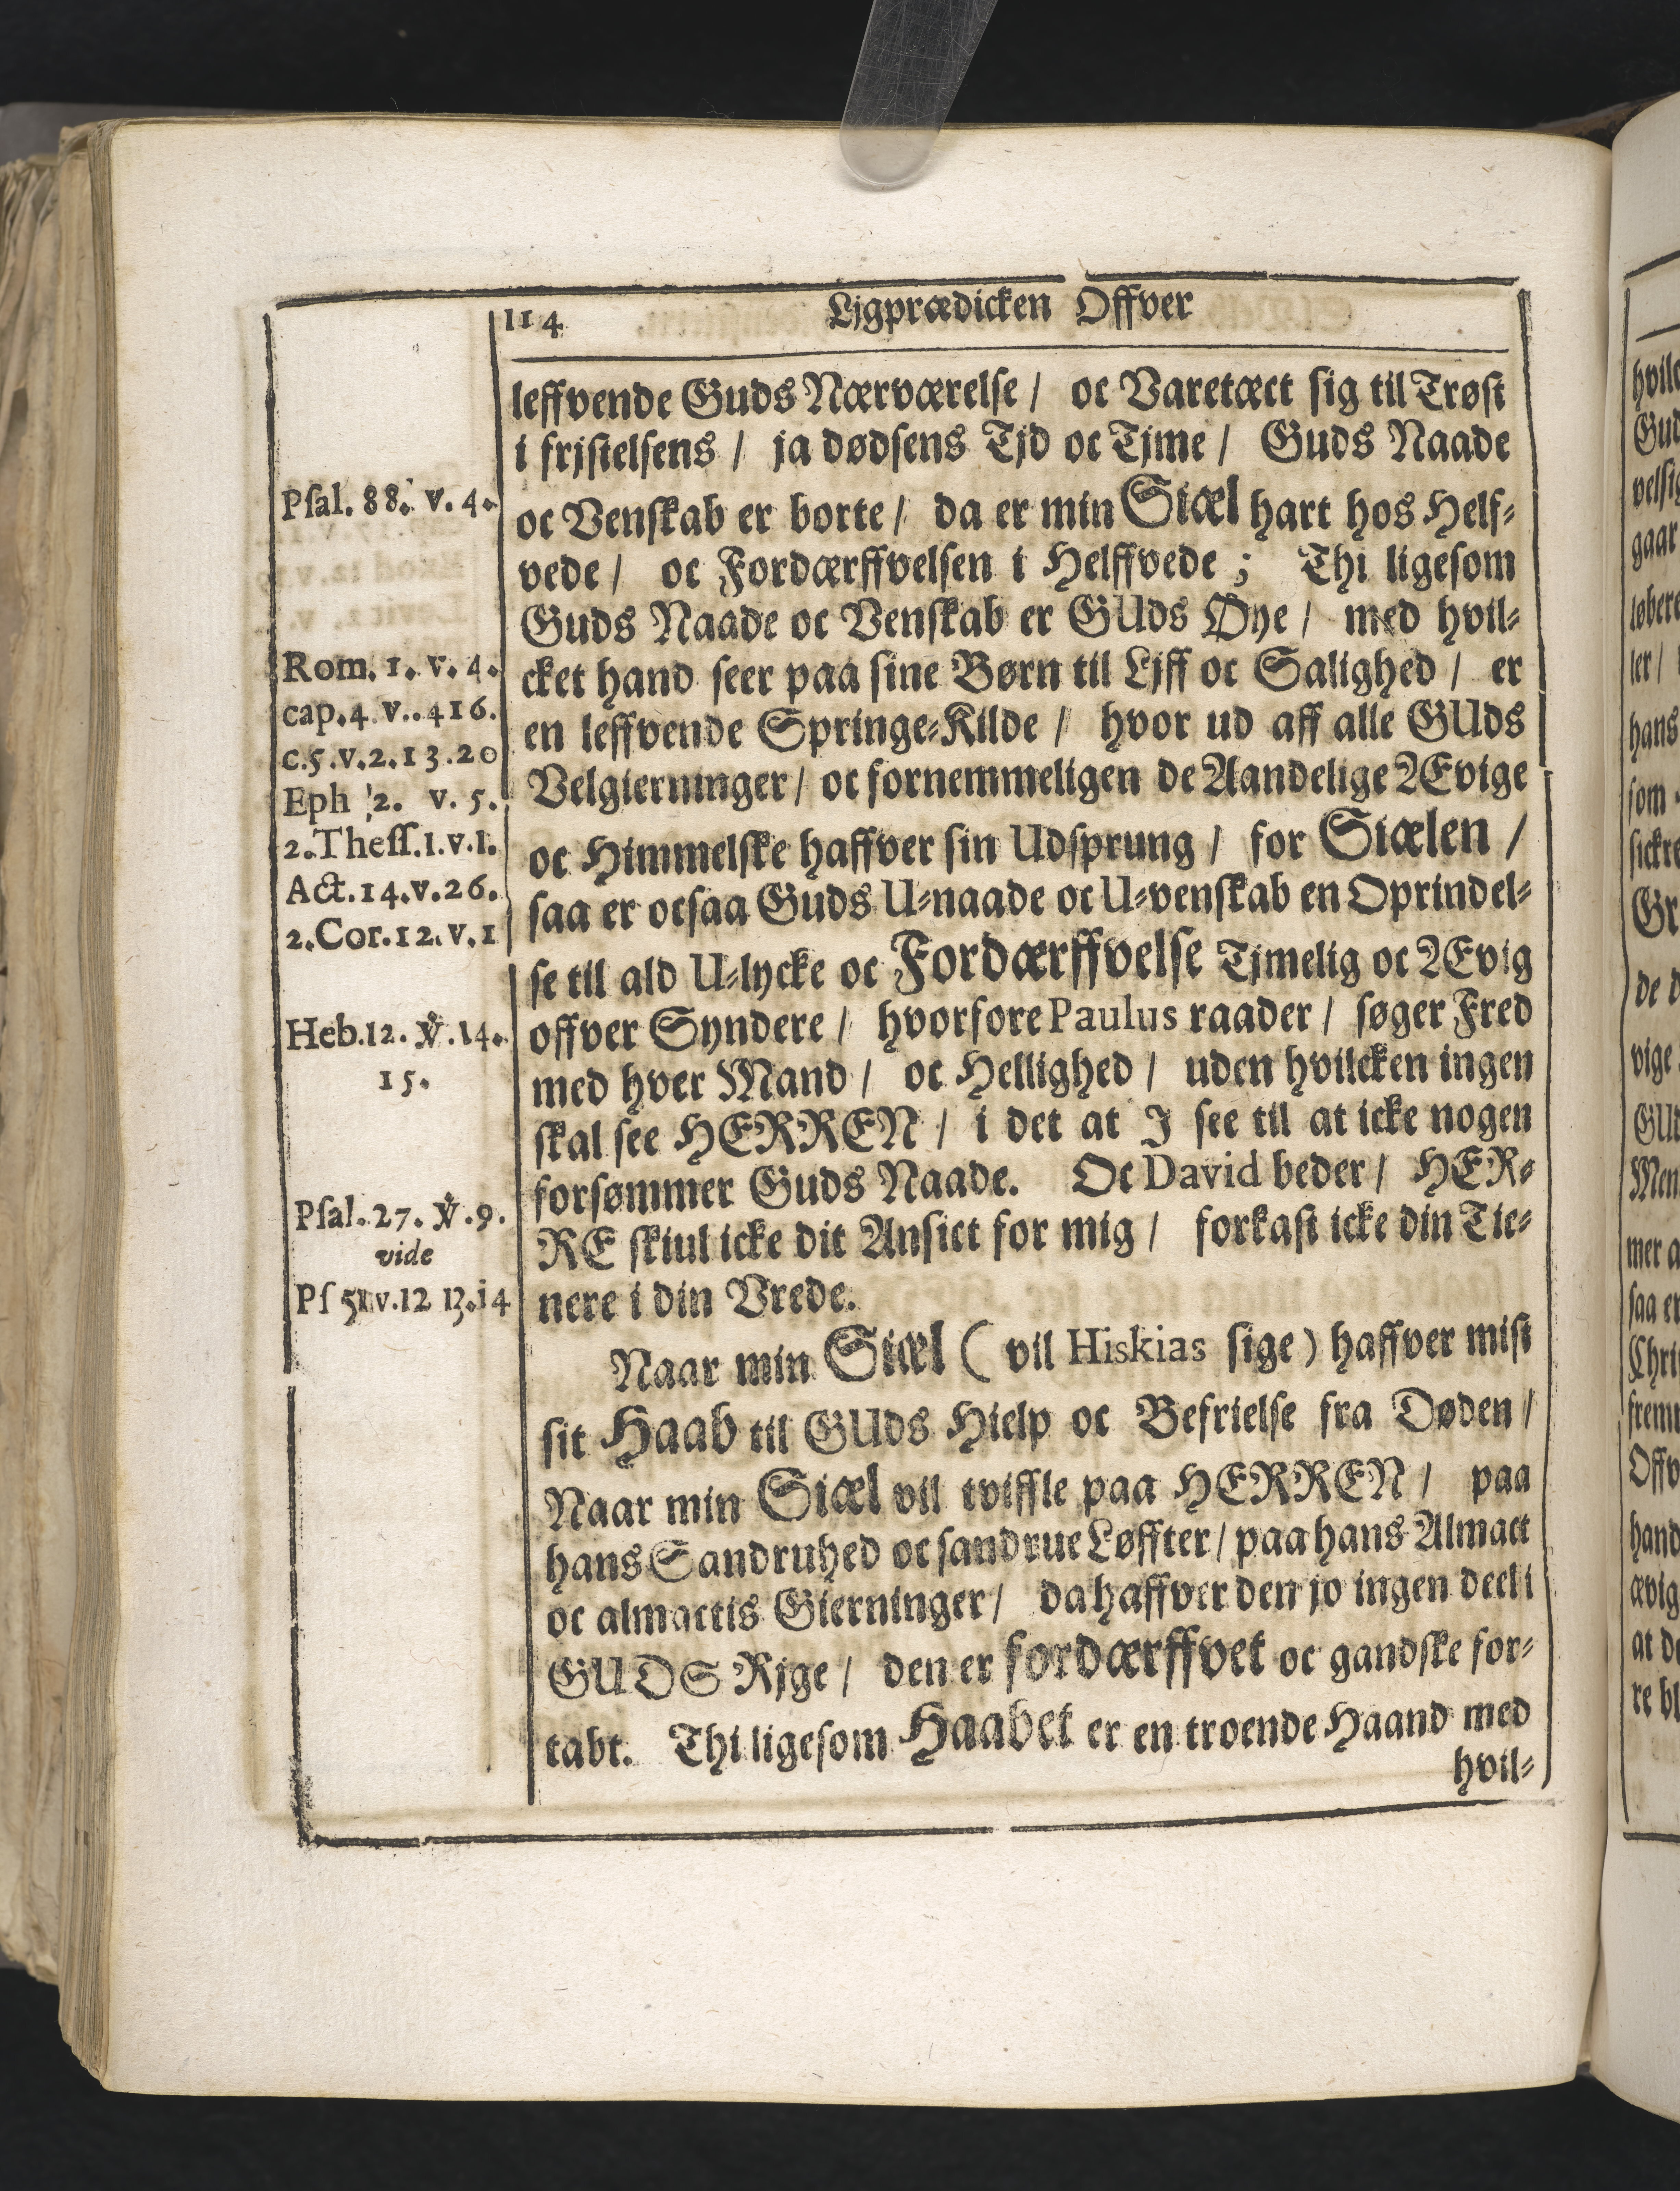 114 Ljgprædicken Offver
leffvende Guds Nærværelse / oc Varetæct sig til Trøst
i frjstelsens / ja dødsens Tjd oc Tjme / Guds Naade
oc Venskab er borte / da er min Siæl hart hos Helf-
vede / oc Fordærffvelsen i Helffvede ; Thi ligesom
Guds Naade oc Venskab er GUds Øye / med hvil-
cket hand seer paa sine Børn til Ljff oc Salighed / er
en leffvende Springe-Kilde / hvor ud aff alle GUds
Velgierninger / oc fornemmeligen de Aandelige Ævige
oc Himmelske haffver sin Udsprung / for Siælen /
saa er ocsaa Guds U-naade oc U-venskab en Oprindel-
se til ald U-lycke oc Fordærffvelse Tjmelig oc Ævig
offver Syndere / hvorfore Paulus raader / søger Fred
med hver Mand / oc Hellighed / uden hvilcken ingen
skal see HERREN / i det at J see til at icke nogen
forsømmer Guds Naade. Oc David beder / HER-
RE skiul icke dit Ansict for mig / forkast icke din Tie-
nere i din Vrede.
Naar min Siæl ( vil Hiskias sige ) haffver mist
sit Haab til GUds Hielp oc Befrielse fra Døden /
Naar min Siæl vil tviffle paa HERREN / paa
hans Sandruhed oc sandrue Løffter / paa hans Almact
oc almactis Gierninger / da haffver den jo ingen deel i
GUDS Rjge / den er fordærffvet oc gandske for-
tabt. Thi ligesom Haabet er en troende Haand med
hvil-
Psal. 88. v. 4.
Rom. 1. v. 4.
cap. 4 v.. 4 16.
c. 5. v. 2. 13. 20
Eph 2. v. 5.
2. Thess. 1. v. 1.
Act. 14. v. 26.
2. Cor. 12. v. 1
Heb. 12. ℣. 14.
15.
Psal. 27. ℣. 9.
vide
Ps 51 v. 12 13. 14